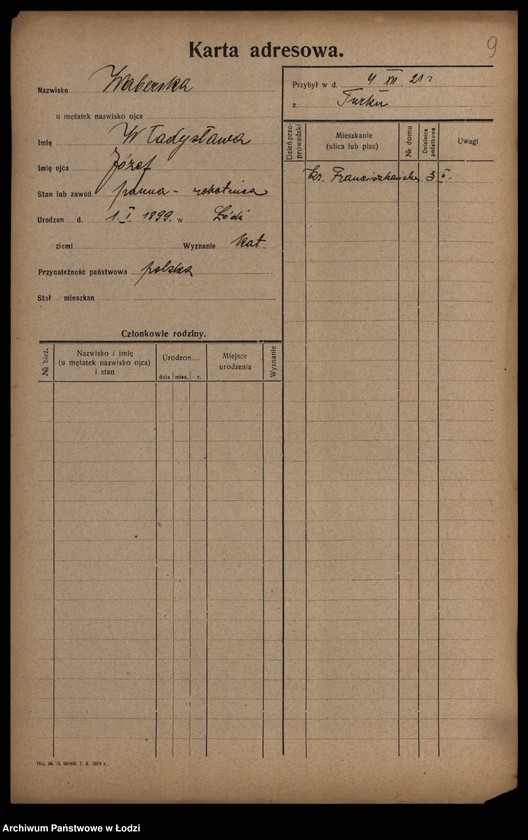 9
Karta adresowa.
Nazwisko Waberska
u mężatek nazwisko ojca
Imię Władysława
Imię ojca Józef
Stan lub zawód panna - robotnica
Urodzon d. 1 I. 1899. w Łódź
ziemi Wyznanie kat.
Przynależność państwowa polska
Stał mieszkan
Przybył w d. 4 XII. 21 r
z Turku
Dzień przeprowadzki
Mieszkanie (ulica lub plac)
№ domu
Dzielnica podatkowa
Uwagi
Franciszkańska 3 I.
Członkowie rodziny.
№ bież.
Nazwisko i imię
(u mężatek nazwisko ojca)
i stan
Urodzon...
dnia mies. r.
Miejsce urodzenia
Wyznanie
Archiwum Państwowe w Łodzi